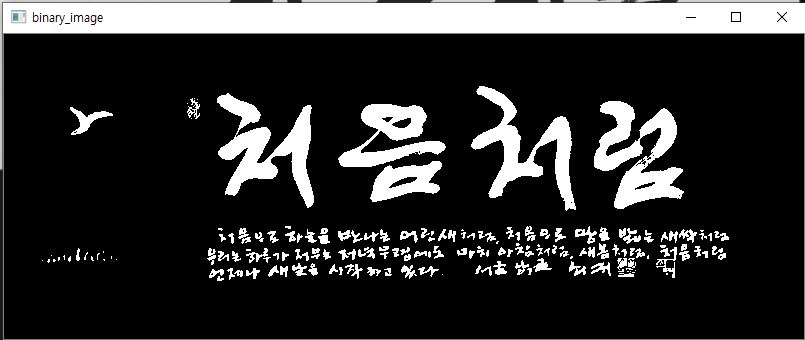 binary_image
처음처럼
처음으로 하늘을 만나는 어린새처럼, 처음으로 땅을 밟는 새싹처럼
우리는 하루가 저무는 저녁무렵에도 마치 아침처럼, 새봄처럼, 처음처럼
언제나 새날을 시작하고 있다.